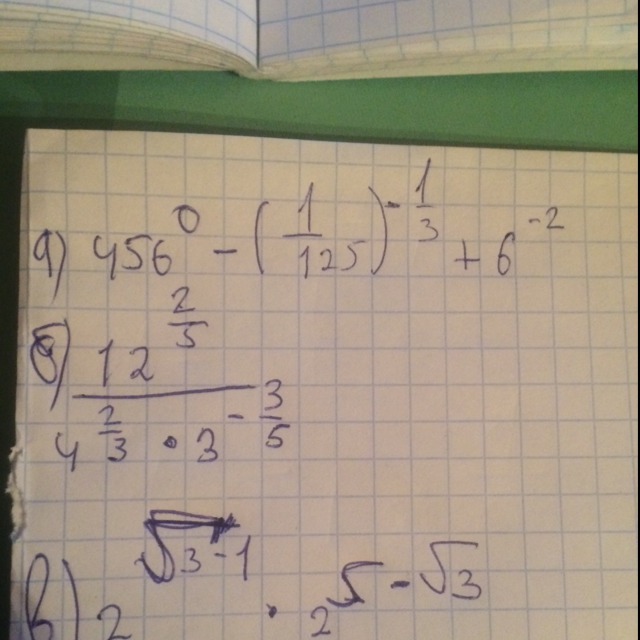 а) 456^0 - (1/125)^(-1/3) + 6^(-2)
б) 12^(2/5) / (4^(2/3) · 3^(-3/5))
в) 2^(√3-1) · 2^(5-√3)